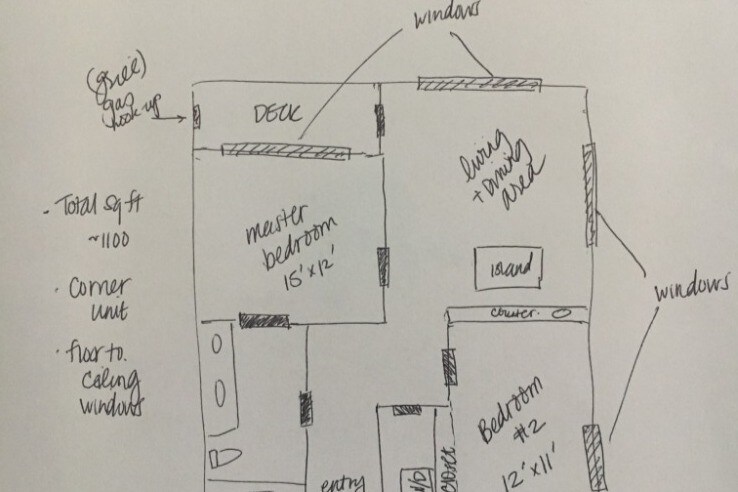 windows
(grill)
gas
hook-up
DECK
living
+ dining
area
Total sq ft
~1100
master
bedroom
15' x 12'
island
windows
Corner
unit
counter.
floor to.
ceiling
windows
Bedroom
#2
12' x 11'
closet
W/D
entry